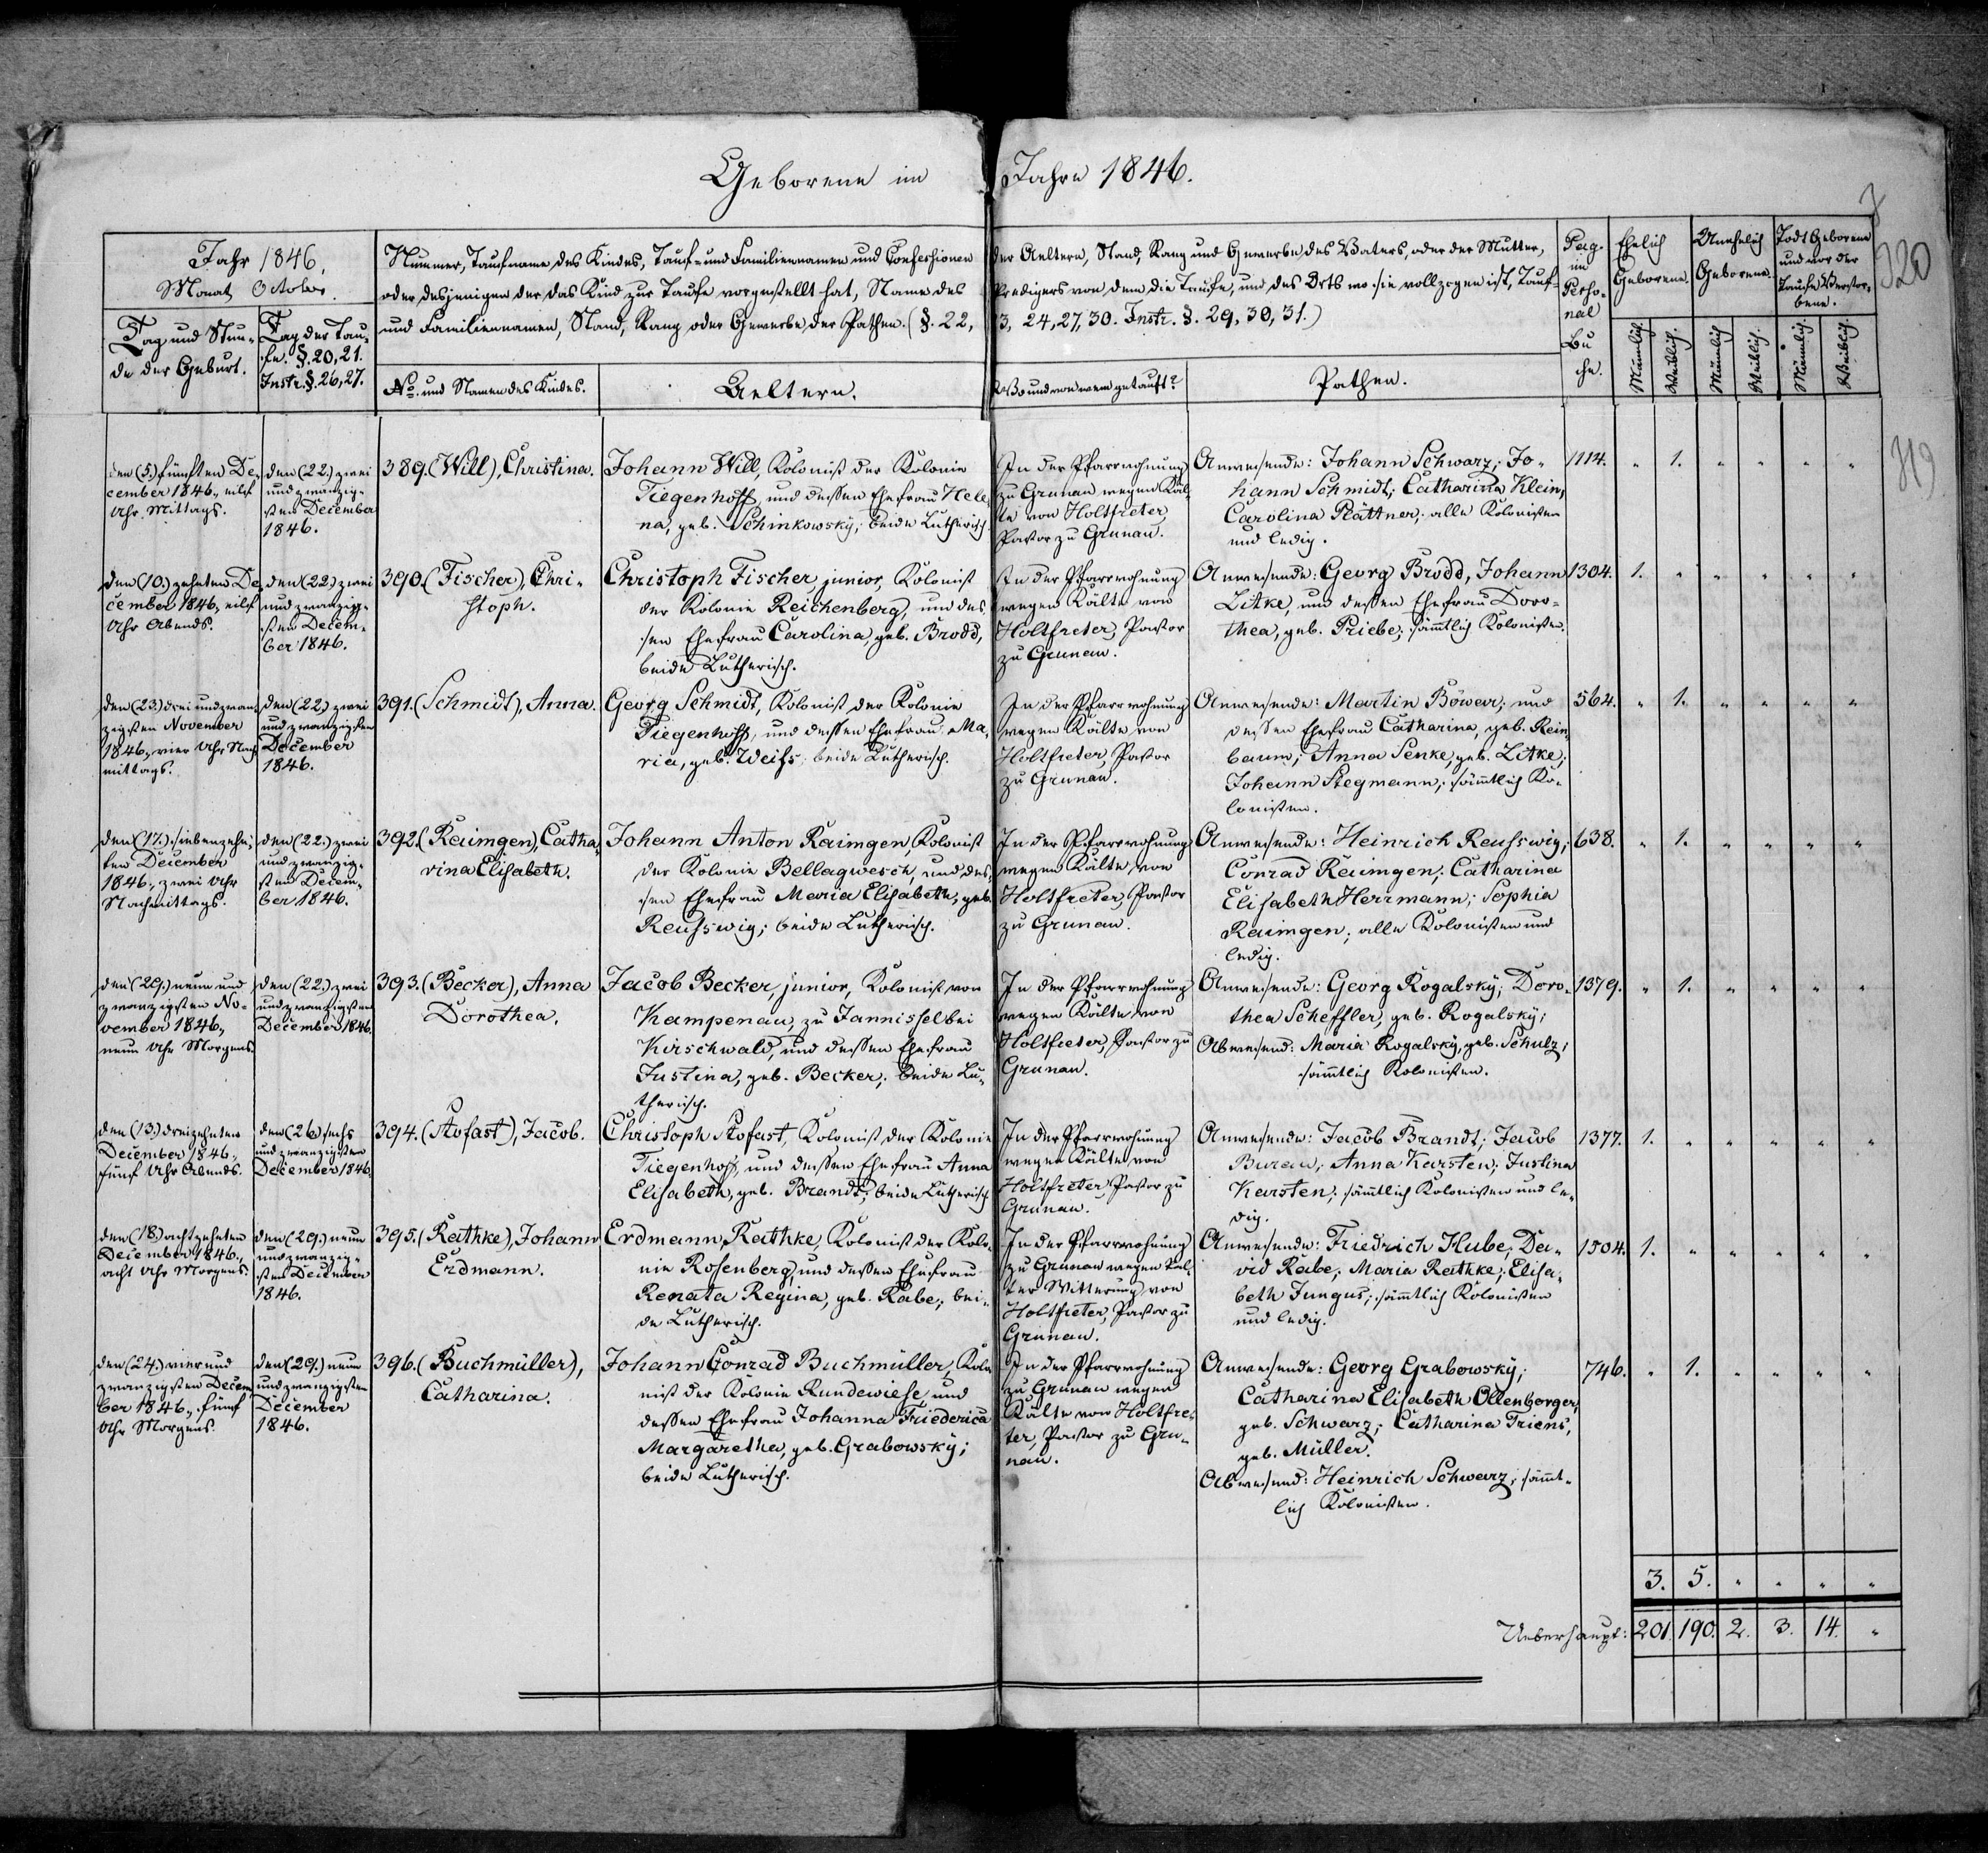 Geborene im Jahre 1846.
320
319
Jahr 1846.
Monat October.
Tag und Stun-
de der Geburt.
Tag der Tau-
fe. §. 20, 21.
Instr. §. 26, 27.
Nummer, Taufname des Kindes, Tauf- und Familiennamen und Confessionen der Aeltern, Stand, Rang und Gewerbe des Vaters, oder der Mutter,
oder desjenigen der das Kind zur Taufe vorgestellt hat, Name des Predigers von dem die Taufe, und des Orts wo sie vollzogen ist, Tauf-
und Familiennamen, Stand, Rang oder Gewerbe der Pathen. (§. 22, 23, 24, 27, 30. Instr. §. 29, 30, 31.)
No. und Namen des Kindes.
Aeltern.
Wo und von wem getauft?
Pathen.
Pag.
im
Perso-
nal
Bu
che.
Ehelich
Geborene.
Unehelich
Geborene.
Todt Geborene
und vor der
Taufe Verstor-
bene.
Männlich.
Weiblich.
Männlich
Weiblich.
Männlich.
Weiblich.
den (5.) fünften De-
cember 1846, eilf
Uhr Mittags.
den (22.) zwei
und zwanzig-
sten December
1846.
389. (Will), Christina.
Johann Will, Kolonist der Kolonie
Tiegenhoff, und dessen Ehefrau Hele-
na, geb. Schinkowsky; beide Lutherisch.
In der Pfarrwohnung
zu Grunau wegen Käl-
te von Holtfreter,
Pastor zu Grunau.
Anwesende: Johann Schwarz; Jo-
hann Schmidt; Catharina Klein;
Carolina Plättner; alle Kolonisten
und ledig.
1114. " 1. " " " "
den (10.) zehnten De-
cember 1846, eilf
Uhr Abends.
den (22.) zwei
und zwanzig-
sten Decem-
ber 1846.
390. (Fischer), Chri-
stoph.
Christoph Fischer, junior, Kolonist
der Kolonie Reichenberg, und des-
sen Ehefrau Carolina, geb. Brodd,
beide Lutherisch.
In der Pfarrwohnung
wegen Kälte von
Holtfreter, Pastor
zu Grunau.
Anwesende: Georg Brodd, Johann
Litke, und dessen Ehefrau Doro-
thea, geb. Priebe; sämtlich Kolonisten.
1304. 1. " " " " "
den (23.) drei und zwan-
zigsten November
1846, vier Uhr Nach
mittags.
den (22.) zwei
und zwanzigsten
December
1846.
391. (Schmidt), Anna.
Georg Schmidt, Kolonist der Kolonie
Tiegenhoff, und dessen Ehefrau Ma-
ria, geb. Weiss; beide Lutherisch.
In der Pfarrwohnung
wegen Kälte von
Holtfreter, Pastor
zu Grunau.
Anwesende: Martin Böwar; und
dessen Ehefrau Catharina, geb. Rein-
baum; Anna Penke, geb. Litke;
Johann Stegmann; sämtlich Ko-
lonisten.
564. " 1. " " " "
den (17.) siebenzehn-
ten December
1846, zwei Uhr
Nachmittags.
den (22.) zwei
und zwanzig-
sten Decem-
ber 1846.
392. (Raimgen), Catha-
rina Elisabeth.
Johann Anton Raimgen, Kolonist
der Kolonie Bellagwesch, und des-
sen Ehefrau Maria Elisabeth, geb.
Reusswig; beide Lutherisch.
In der Pfarrwohnung
wegen Kälte von
Holtfreter, Pastor
zu Grunau.
Anwesende: Heinrich Reusswig;
Conrad Raimgen; Catharina
Elisabeth Herrmann; Sophia
Raimgen; alle Kolonisten und
ledig.
638. " 1. " " " "
den (29.) neun und
zwanzigsten No-
vember 1846,
neun Uhr Morgens.
den (22.) zwei
und zwanzigsten
December 1846.
393. (Becker), Anna
Dorothea.
Jacob Becker, junior, Kolonist von
Kampenau, zu Jannissel bei
Kirschwald, und dessen Ehefrau
Justina, geb. Becker; beide Lu-
therisch.
In der Pfarrwohnung
wegen Kälte von
Holtfreter, Pastor zu
Grunau.
Anwesende: Georg Rogalsky; Doro-
thea Scheffler, geb. Rogalsky;
Abwesend: Maria Rogalsky, geb. Schulz;
sämtlich Kolonisten.
1379. " 1. " " " "
den (13.) dreizehnten
December 1846,
fünf Uhr Abends.
den (26.) sechs
und zwanzigsten
December 1846.
394. (Aofast), Jacob.
Christoph Aofast, Kolonist der Kolonie
Tiegenhoff, und dessen Ehefrau Anna
Elisabeth, geb. Brandt; beide Lutherisch.
In der Pfarrwohnung
wegen Kälte von
Holtfreter, Pastor zu
Grunau.
Anwesende: Jacob Brandt; Jacob
Burau; Anna Karsten; Justina
Karsten; sämtlich Kolonisten und le-
dig.
1377. 1. " " " " "
den (18.) achtzehnten
December 1846,
acht Uhr Morgens.
den (29.) neun
und zwanzig-
sten December
1846.
395. (Rathke), Johann
Erdmann.
Erdmann Rathke, Kolonist der Kolo-
nie Rosenberg, und dessen Ehefrau
Renata Regina, geb. Rabe; bei-
de Lutherisch.
In der Pfarrwohnung
zu Grunau wegen kal-
ter Witterung von
Holtfreter, Pastor zu
Grunau.
Anwesende: Friedrich Hube; Da-
vid Rabe; Maria Rathke; Elisa-
beth Jungus; sämtlich Kolonisten
und ledig.
1504. 1. " " " " "
den (24.) vier und
zwanzigsten Decem-
ber 1846, fünf
Uhr Morgens.
den (29.) neun
und zwanzigsten
December
1846.
396. (Buchmüller),
Catharina.
Johann Conrad Buchmüller, Kolo-
nist der Kolonie Rundewiese, und
dessen Ehefrau Johanna Friederica
Margaretha, geb. Grabowsky;
beide Lutherisch.
In der Pfarrwohnung
zu Grunau wegen
Kälte von Holtfre-
ter, Pastor zu Gru-
nau.
Anwesende: Georg Grabowsky;
Catharina Elisabeth Ollenberger,
geb. Schwarz; Catharina Triens,
geb. Müller.
Abwesend: Heinrich Schwarz; sämt-
lich Kolonisten.
746. " 1. " " " "
3. 5. " " " "
Ueberhaupt: 201. 190. 2. 3. 14. "